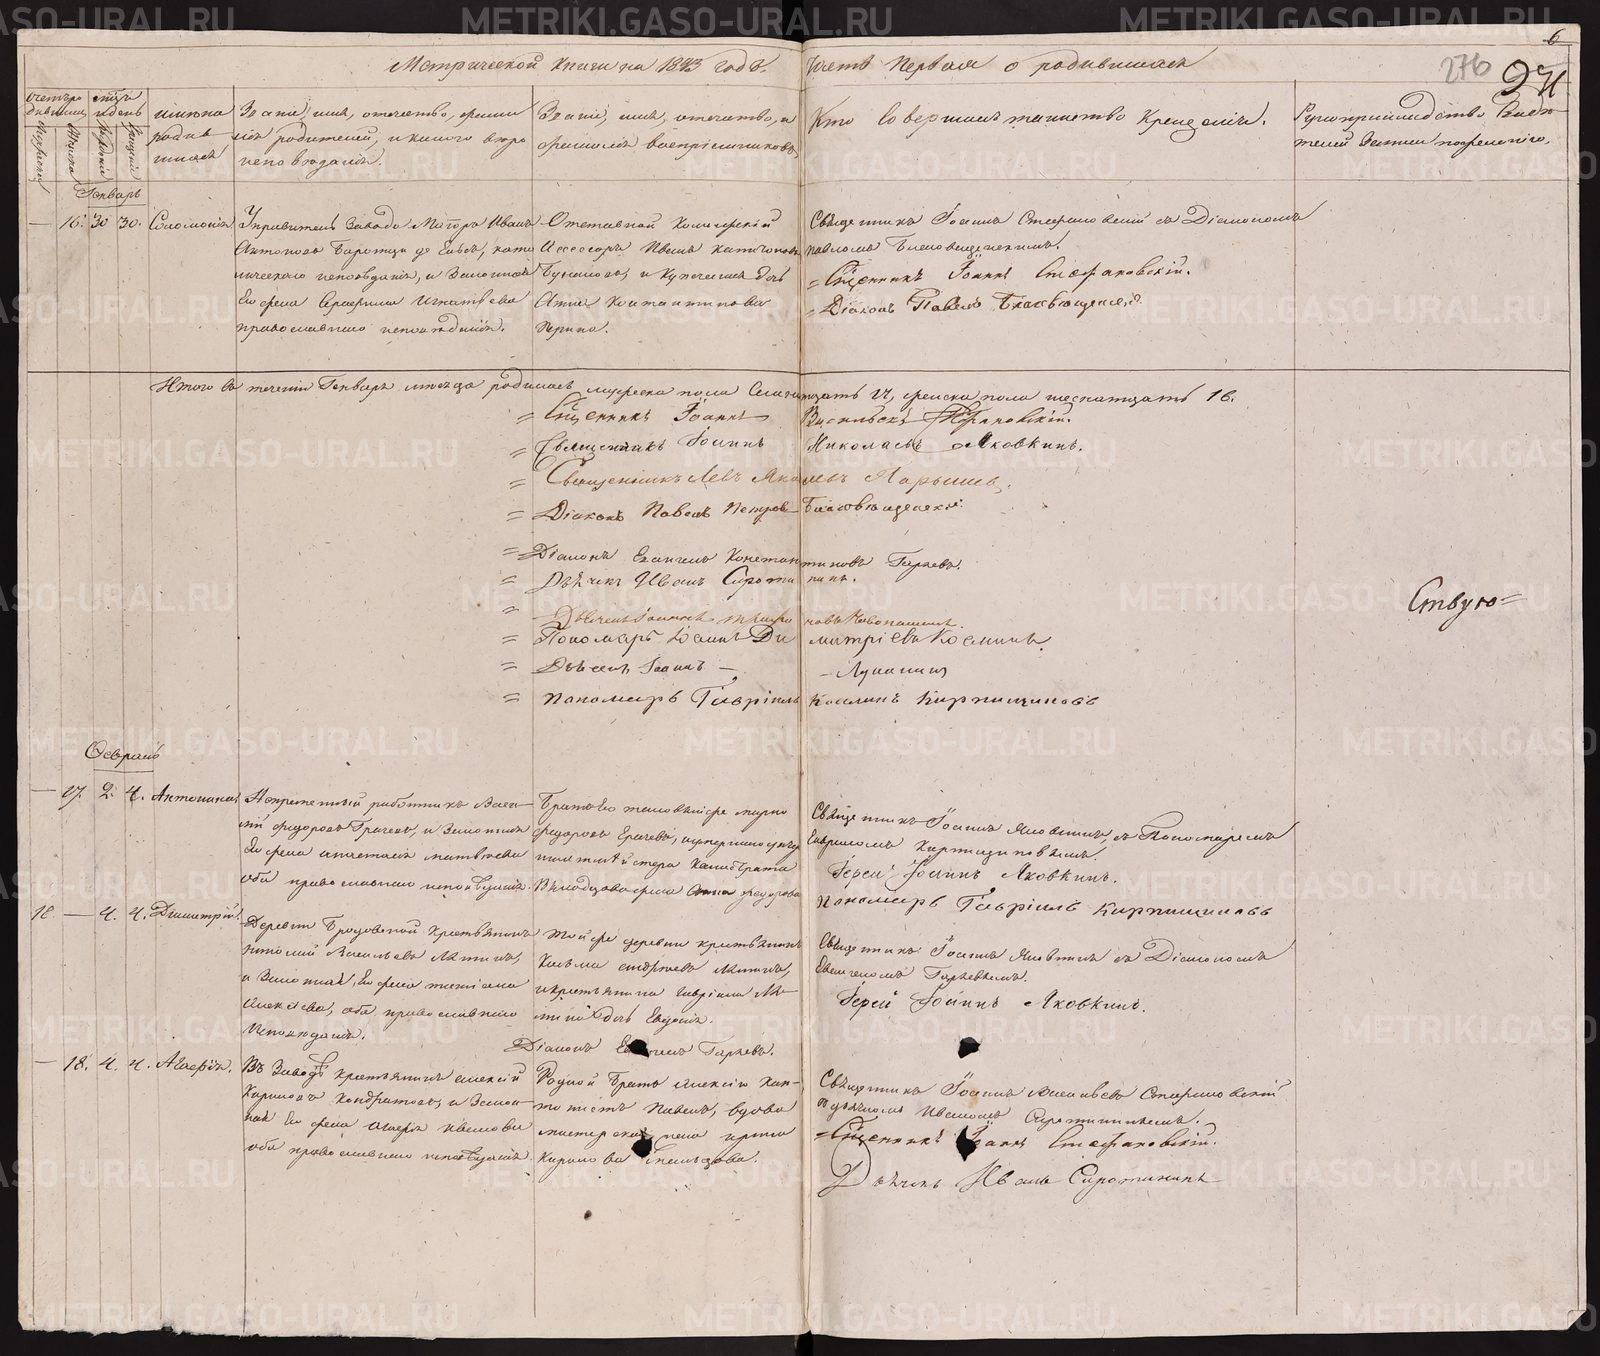 Метрической книги на 1843 годъ. Часть Первая о родившихся
6
276
Счетъ ро
дившихся
Мужеска
Женска
Мѣсяцъ
и день
Рожденія
Крещенія
Имена
родив
шихся
Званіе, имя, отечество, фамилія
родителей, и какого вѣро
исповѣданія.
Званіе, имя, отечество, и
фамилія воспріемниковъ
Кто Совершалъ таинство Крещенія.
Рукоприкладство Свидѣ
телей Записи по желанію.
Генварь
16. 30 30. Соломонія
Управитель Завода Маіоръ Иванъ
Антоновъ
католическаго исповѣданія, и Законная
Его жена Серафима Игнатьева
православнаго исповѣданія.
Отставной Коллежскій
Ассесоръ Иванъ
и Купеческая дочь
Анна Константинова
Священникъ Іоаннъ Стефановскій съ Діакономъ
Павломъ Благовѣщенскимъ.
= Сщенникъ Іоаннъ Стефановскій.
= Діаконъ Павелъ Благовѣщенскій.
Итого въ теченіи Генваря мѣсяца родилось мужеска пола Семнадцать 17, женска пола шеснатцать 16.
= Сщенникъ Іоаннъ Васильевъ Стефановскій.
= Священникъ Іоаннъ Николаевъ Яковкинъ.
= Священникъ Левъ Яковлевъ
= Діаконъ Павелъ Петровъ Благовѣщенскій
= Діаконъ Евангелъ Константиновъ Гаряевъ.
= Дьячекъ Иванъ Сиротининъ.
= Дьячекъ Іоаннъ
= Пономарь Іоаннъ Димитріевъ Косминъ.
= Дьячекъ Іоаннъ — Лукинъ
= Пономарь Гавріилъ Косминъ Кирпищиковъ
Ствую=
Февраль
17. 2. 4. Антонина
Непремѣнный работникъ Васи
лій Федоровъ Грачевъ, и Законная
Его жена Анастасія Матвѣева
оба православнаго исповѣданія.
Братъ Его таковый же Марко
Федоровъ Грачевъ, и
жена Анна Федорова
Священникъ Іоаннъ Яковкинъ съ Пономаремъ
Гавріиломъ Кирпищиковымъ.
Іерей Іоаннъ Яковкинъ.
Пономарь Гавріилъ Кирпищиковъ
18 — 4. 4. Димитрій.
Деревни Бродовской Крестьянинъ
Васильевъ Лятинъ,
и Законная Его жена Татіана
Алексѣева, оба православнаго
исповѣданія.
Той же деревни крестьянинъ
Козьма Андреевъ Лятинъ,
и крестьянина Гавріила
дочь Евдокія.
Священникъ Іоаннъ Яковкинъ съ Діакономъ
Евангеломъ Гаряевымъ.
Іерей Іоаннъ Яковкинъ.
Діаконъ Евангелъ Гаряевъ.
— 18. 4. 4. Агафія.
Въ Заводѣ крестьянинъ Алексій
Кириловъ Кондратовъ, и Закон
ная Его жена Агафія Иванова
оба православнаго исповѣданія
Родной братъ Алексію
Павелъ, вдова
мастерская жена Ирина
Кирилова
Священникъ Іоаннъ Васильевъ Стефановскій
съ дьячкомъ Иваномъ Сиротининымъ.
= Сщенникъ Іоаннъ Стефановскій.
Дьячекъ Иванъ Сиротининъ
METRIKI.GASO-URAL.RU